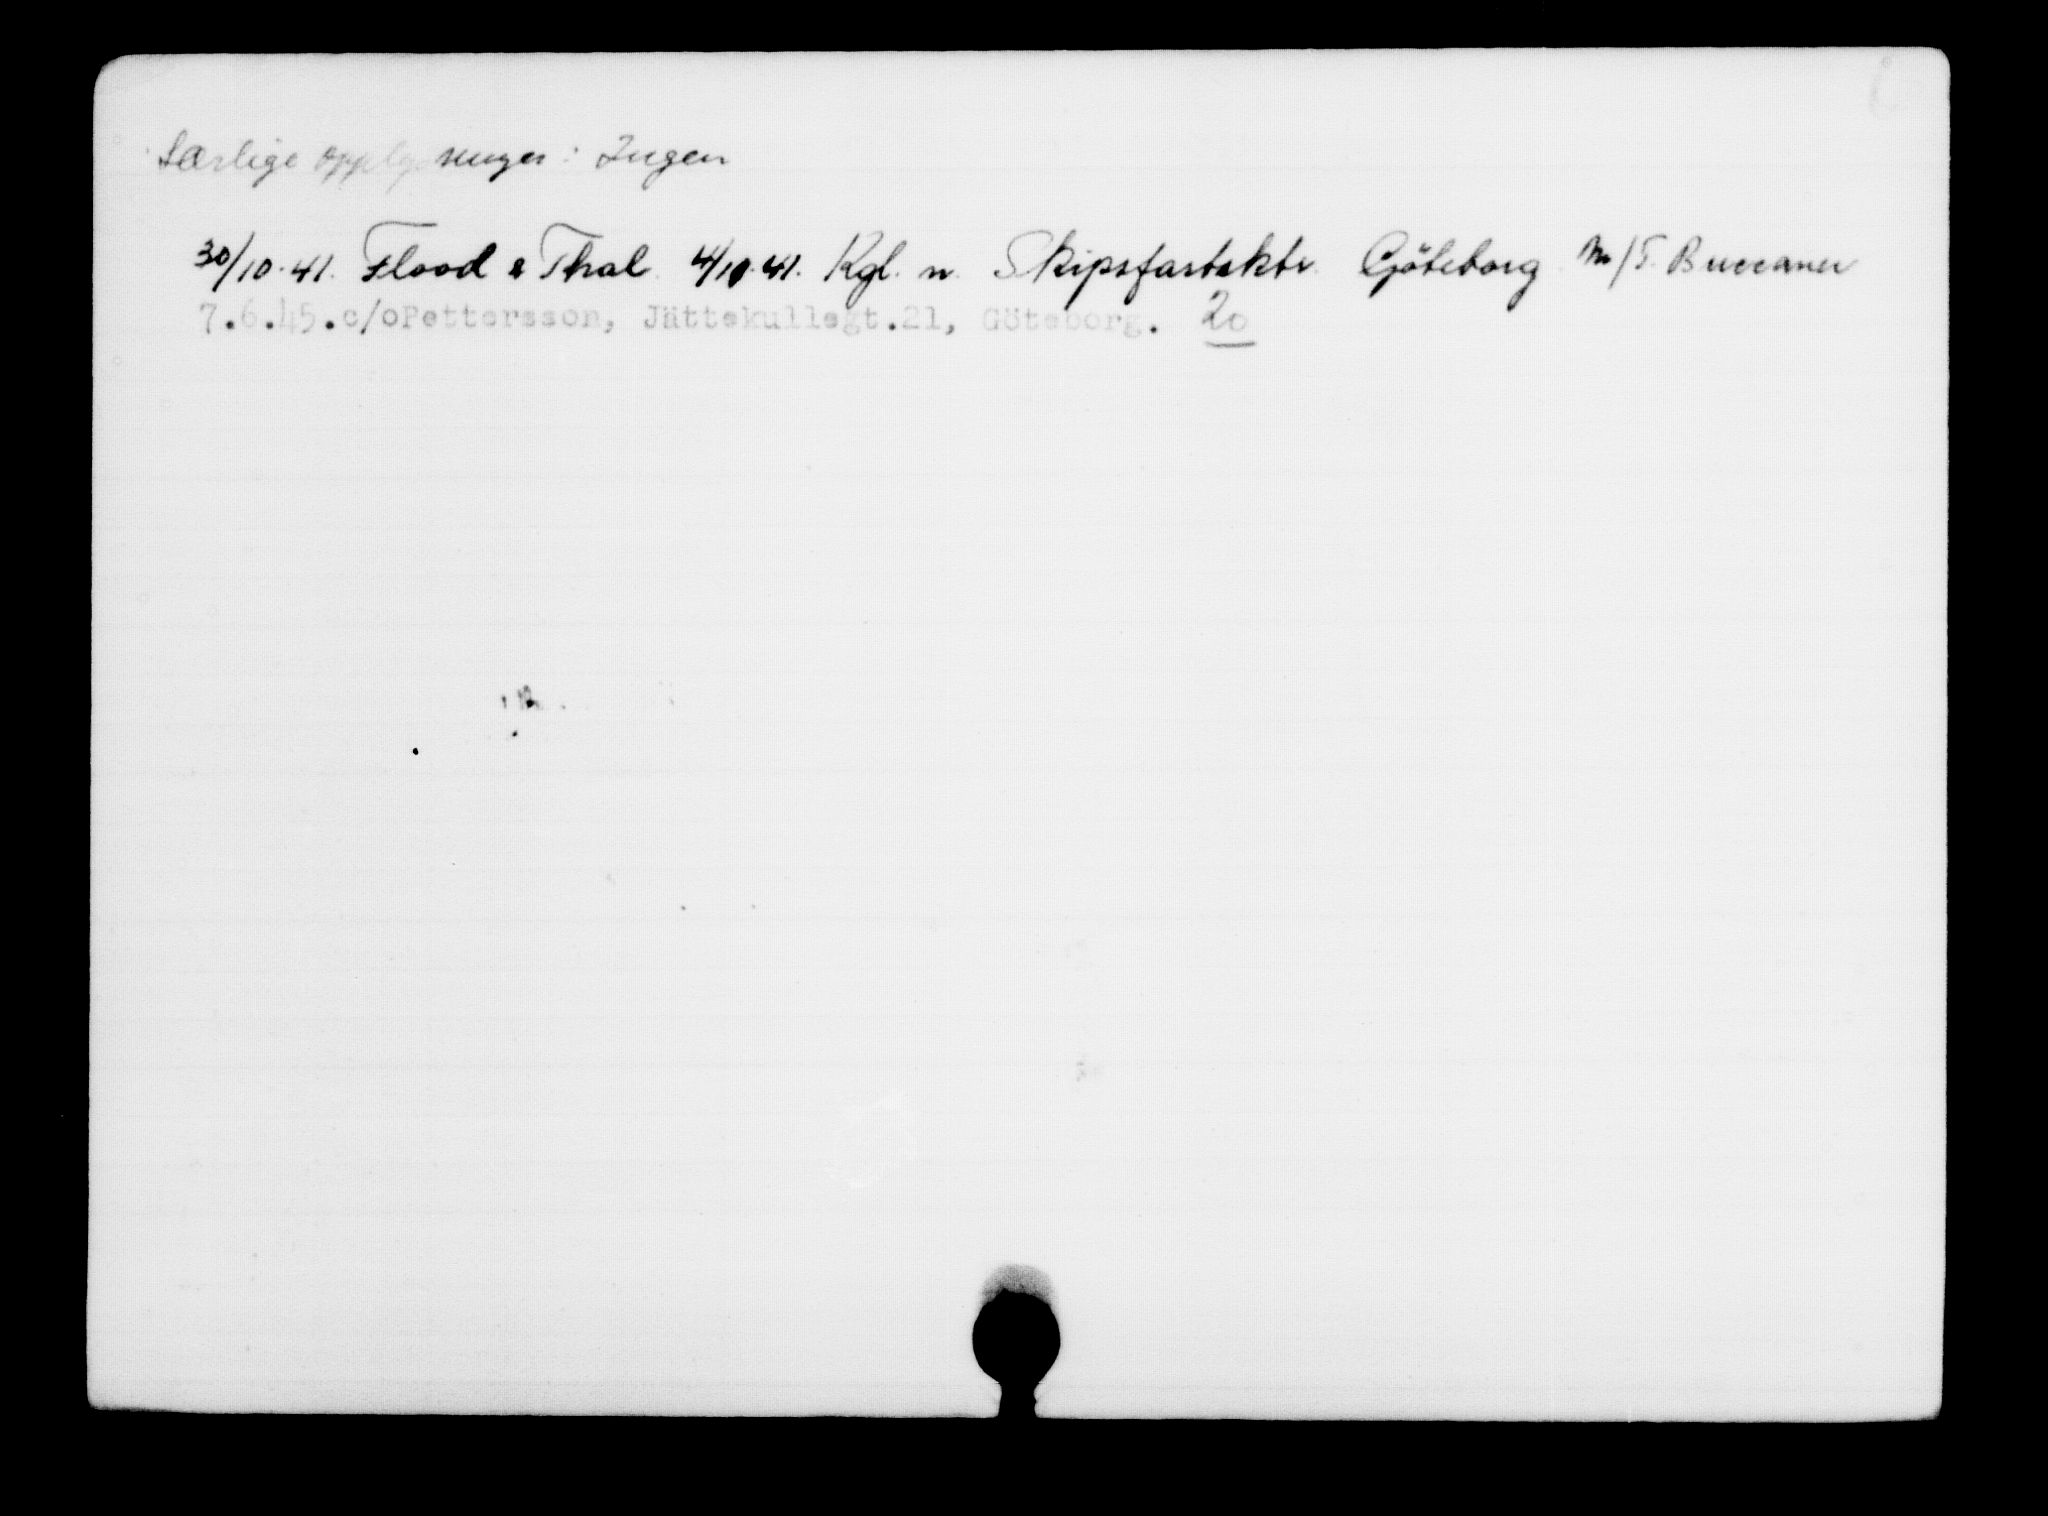 Særlige opplysninger: Ingen
30/10.41. Flood & Thal 4/10.41. Kgl. n. Skipsfartsktr. Göteborg M/T. Buccaner
7.6.45.c/oPettersson, Jättekullegt.21, Göteborg. 20